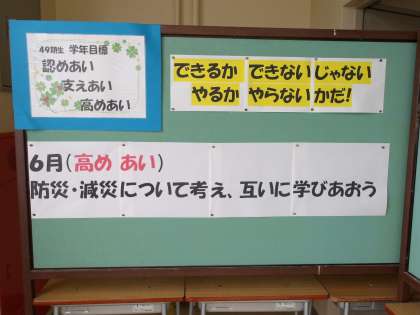 49期生 学年目標
認めあい
支えあい
高めあい
できるか できないじゃない
やるか やらないかだ!
6月(高め あい)
防災・減災について考え、互いに学びあおう